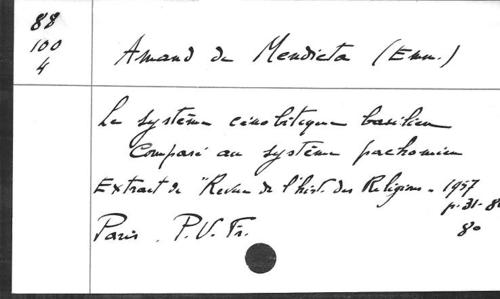 88
100
4
Amand de Mendieta (Emm.)
Le système cénobitique basilien
Comparé au système pachomien
Extrait de "Revue de l'hist. des Religions - 1957
p. 31-80
Paris. P.U.Fr.
8o